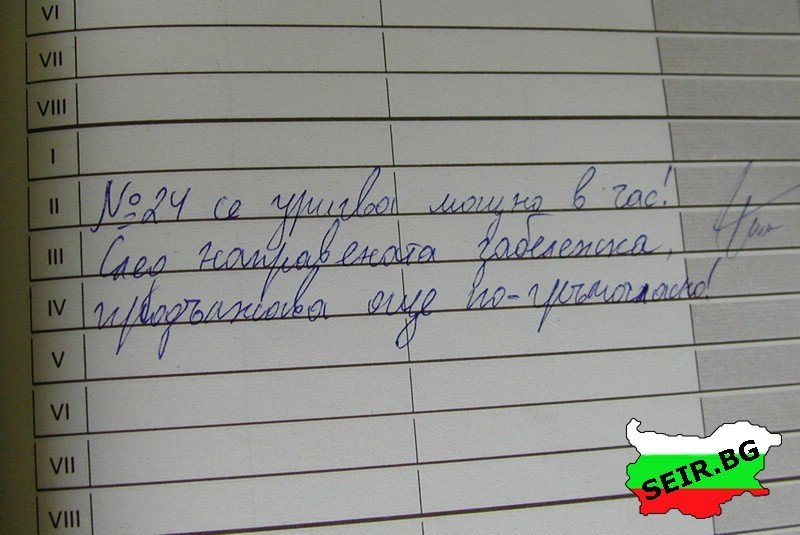 VI
VII
VIII
I
II № 24 се уригва мощно в час!
III След направената забележка,
IV продължава още по-гръмогласно!
V
VI
VII
VIII
SEIR.BG